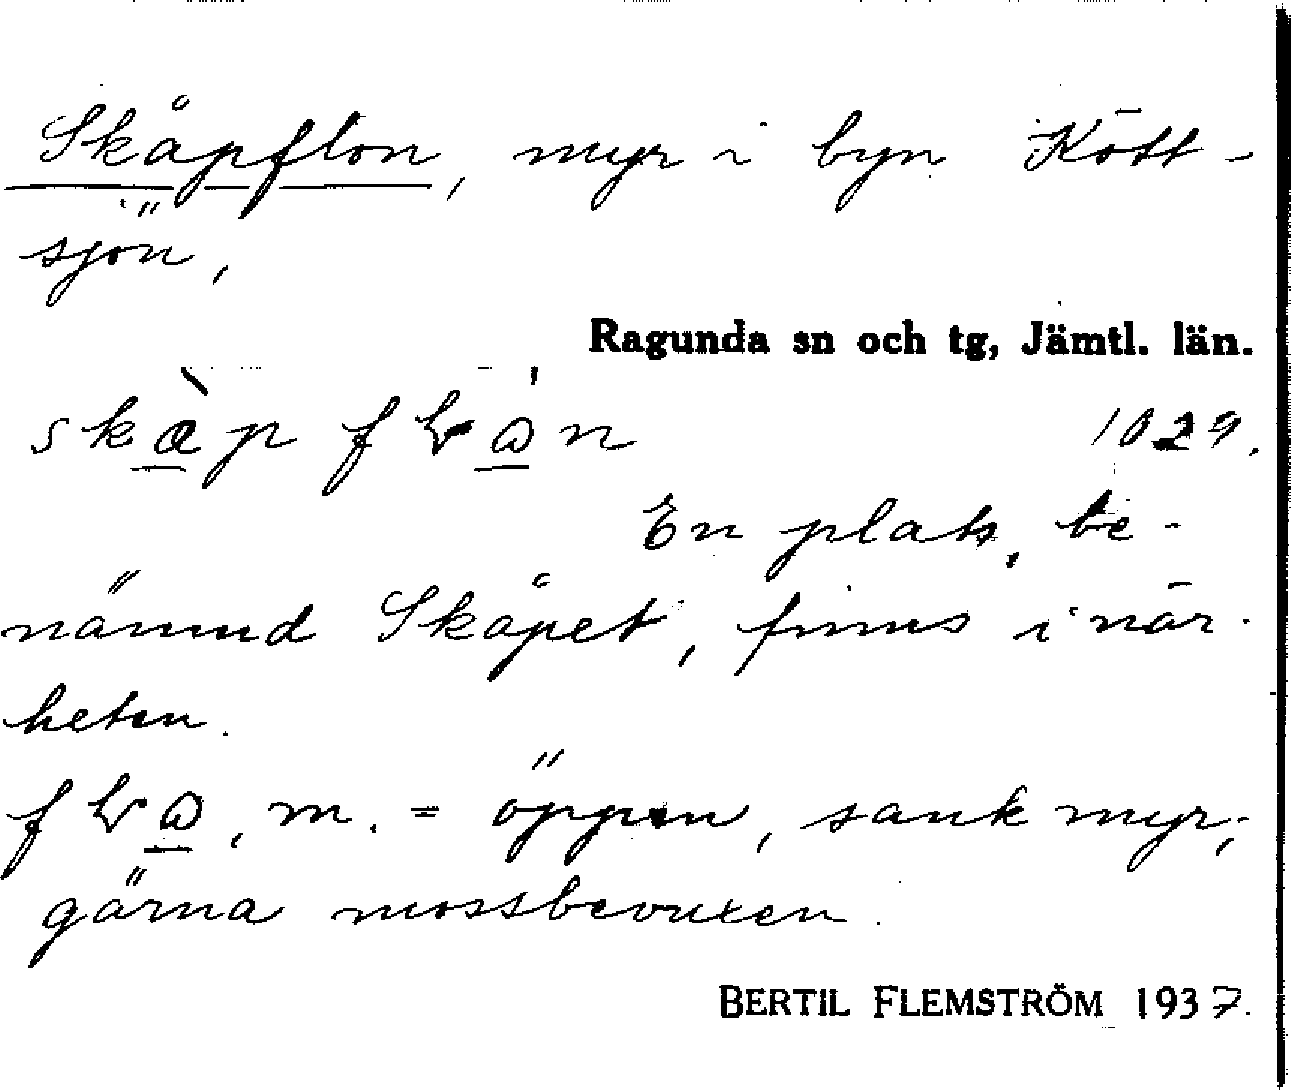 Skåpflon, myr i byn Kött-
sjön,
Ragunda sn och tg, Jämtl. län.
1029.
En plats, be-
nämnd Skåpet, finns i när-
heten.
m. = öppen, sank myr,
gärna mossbevuxen.
BERTIL FLEMSTRÖM 1937.